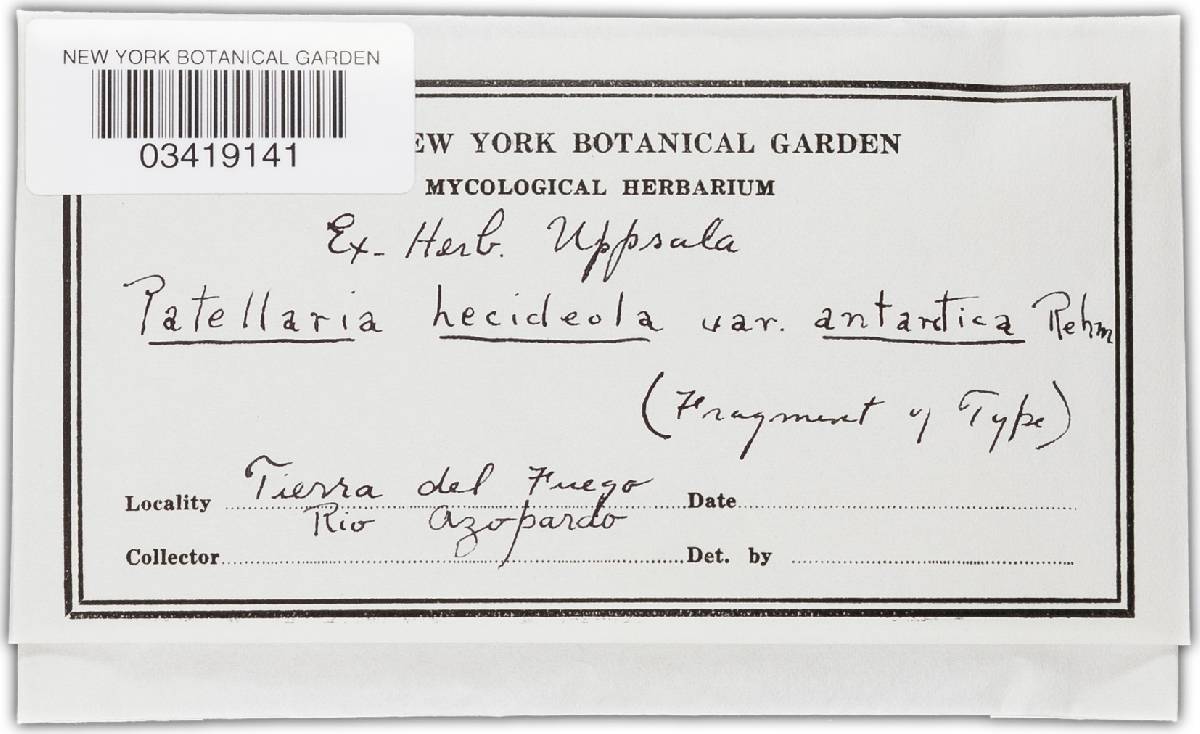 NEW YORK BOTANICAL GARDEN
03419141
EW YORK BOTANICAL GARDEN
MYCOLOGICAL HERBARIUM
Ex- Herb. Uppsala
Patellaria hecideola var. antarctica Rehm
(Fragment of Type)
Locality Tierra del Fuego Date
Rio Azopardo
Collector Det. by